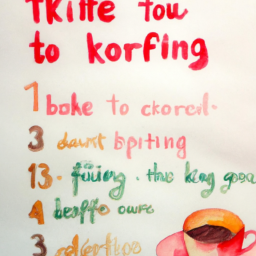 TKiffe Tow
to korfing
1 bake to ckorcl.
3 dawt bpiting
13. füing. the king goa
4 beffo owc
3